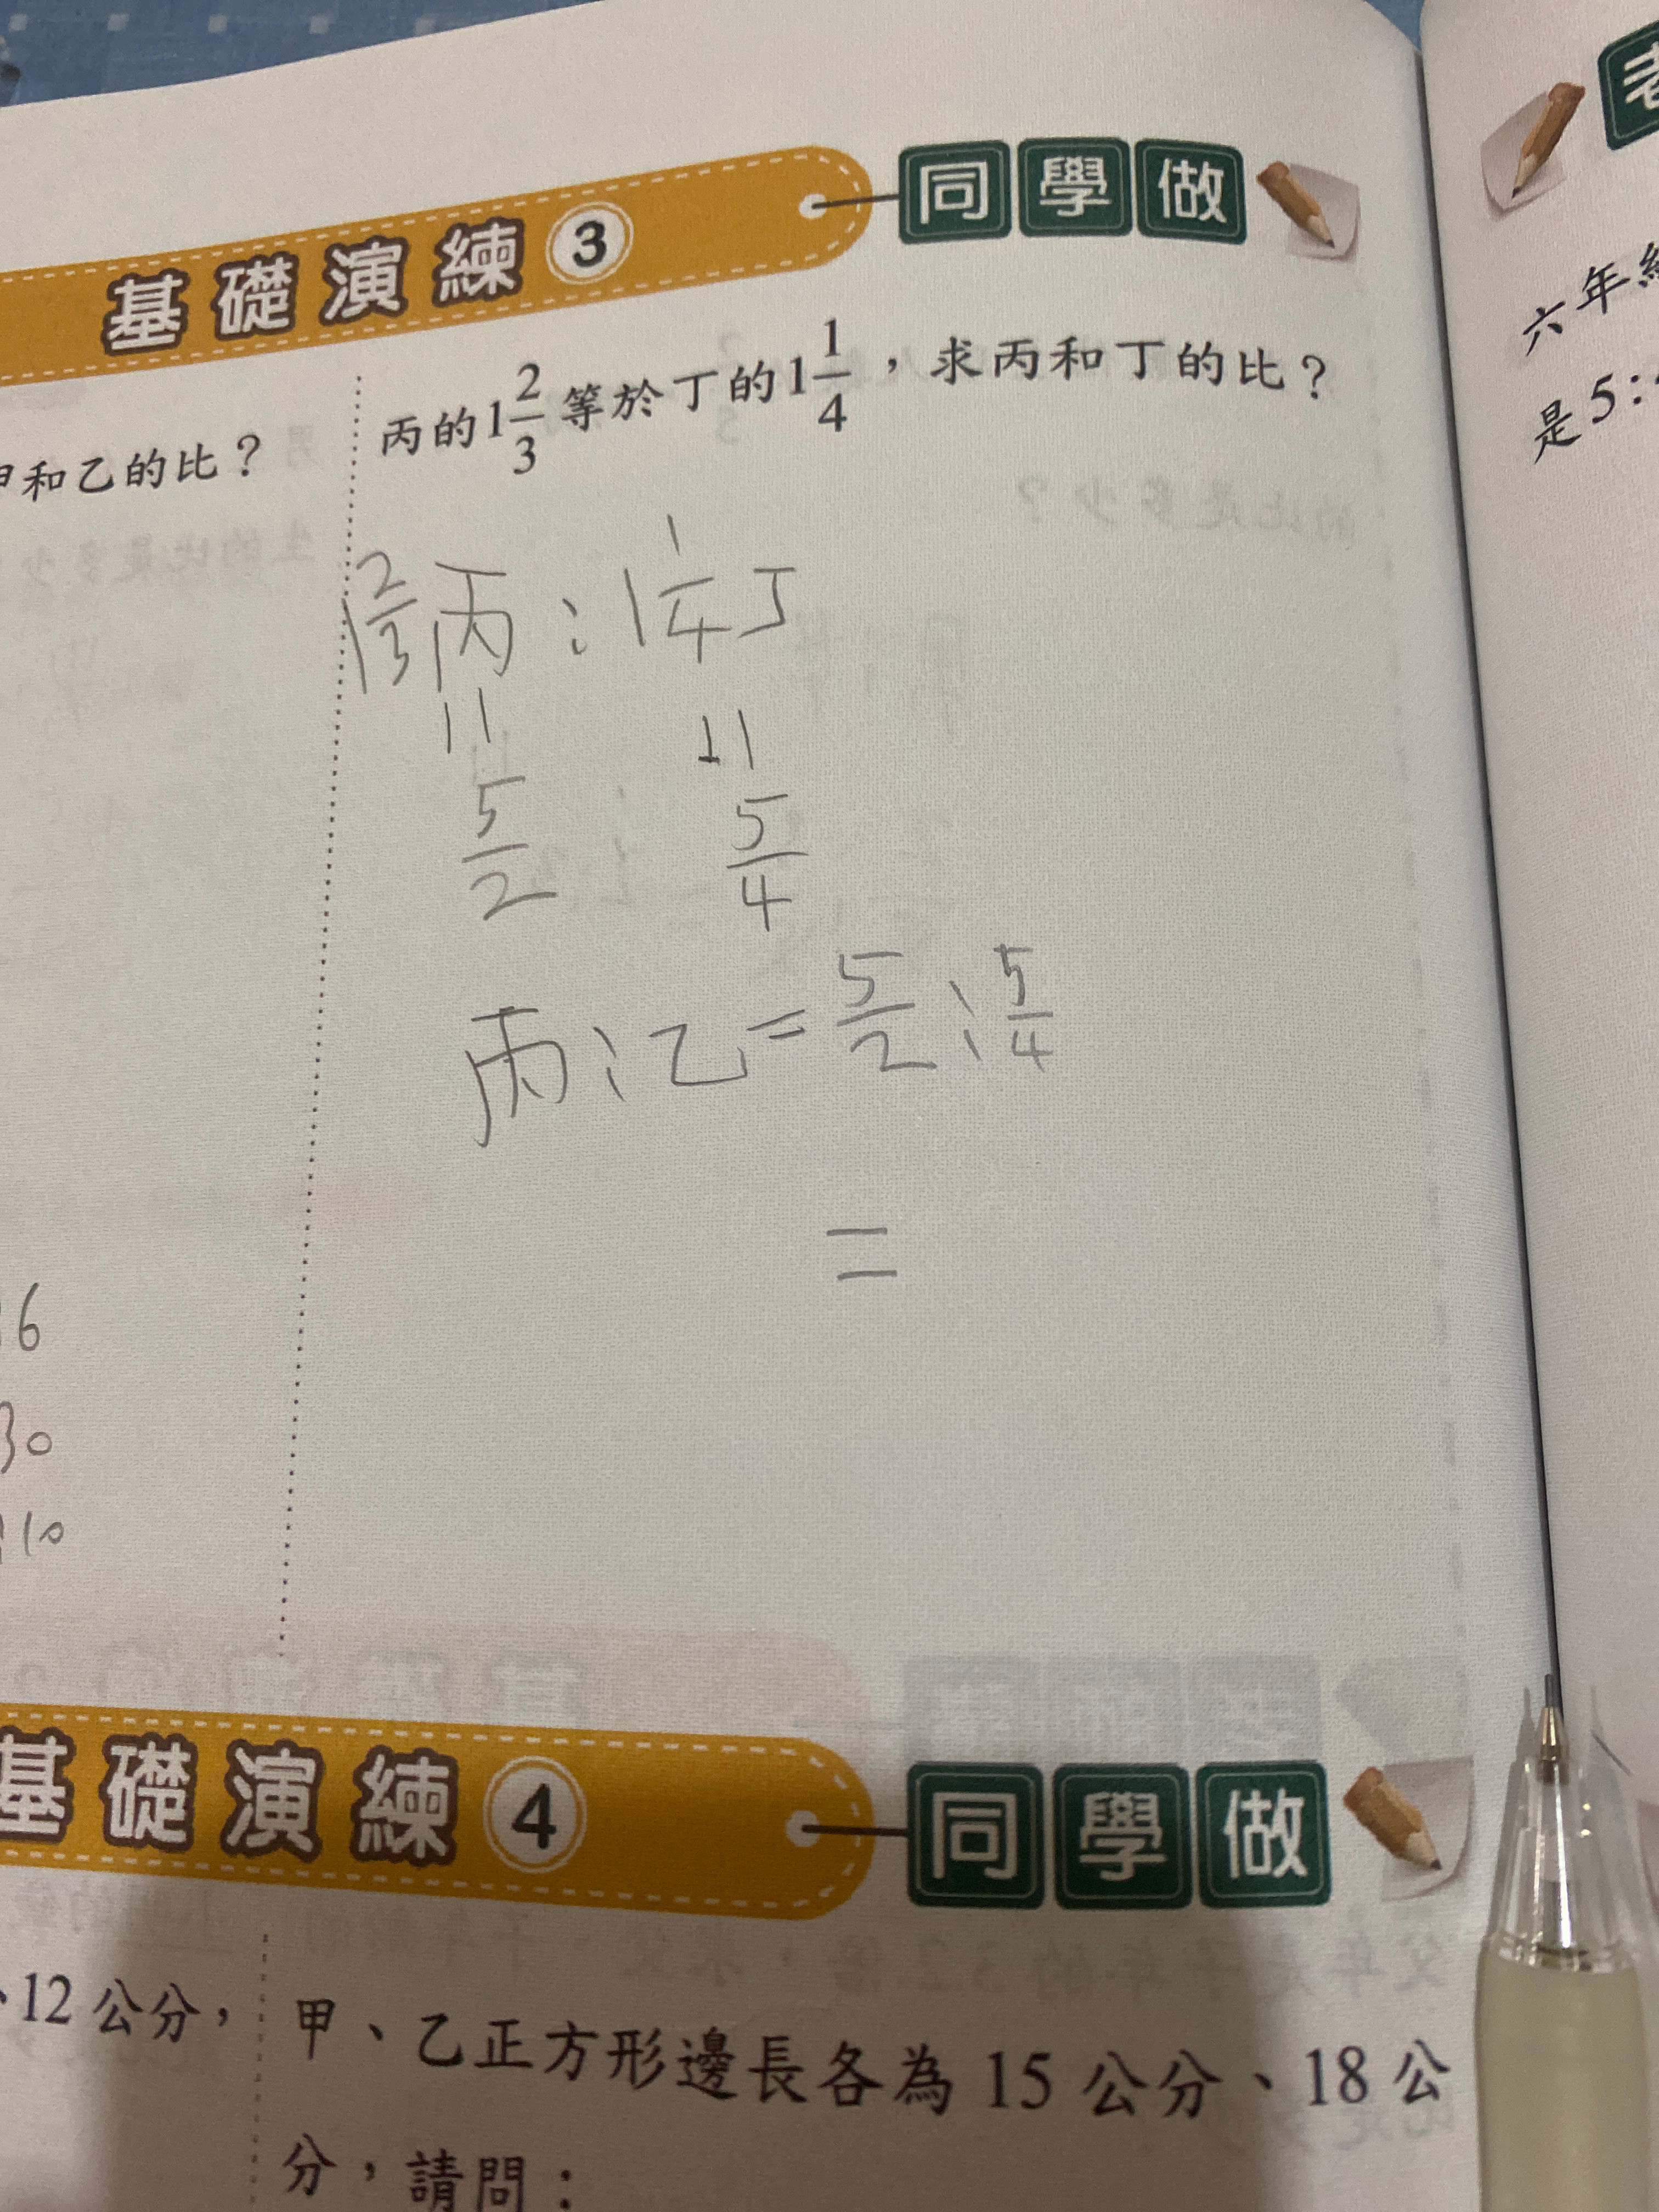 基礎演練3 同學做
和乙的比？
丙的1 2/3等於丁的1 1/4，求丙和丁的比？
1 2/3丙：1 1/4丁
11 11
5/2 5/4
丙：乙=5/2：5/4
=
16
30
10
基礎演練4 同學做
、12公分，
甲、乙正方形邊長各為15公分、18公
分，請問：
六年
是5：